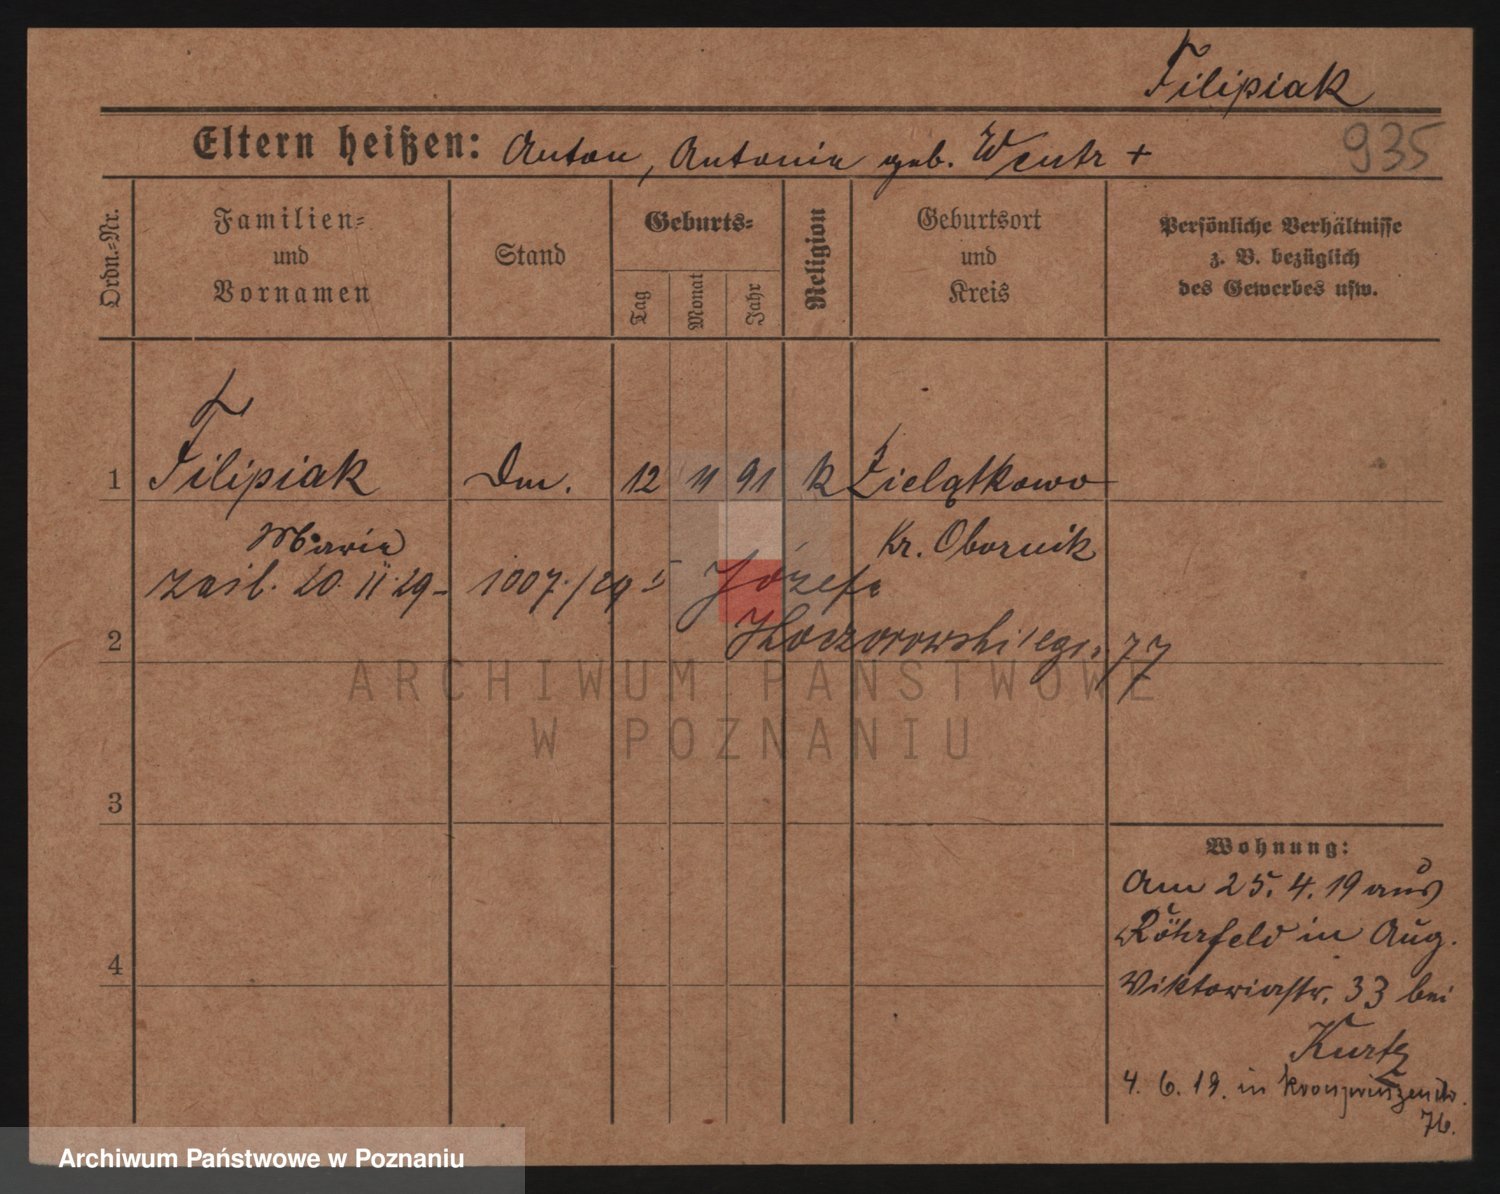 Filipiak
Eltern heißen: Anton, Antonie geb. +
935
Ordn.-Nr.
Familien-
und
Vornamen
Stand
Geburts-
Tag
Monat
Jahr
Religion
Geburtsort
und
Kreis
Persönliche Verhältnisse
z. B. bezüglich
des Gewerbes usw.
1 Filipiak Dm. 12 11 91 k Zielątkowo
Marie Kr. Obornik
zasl. 20. II. 29 - 1007./29 Józefa
2
77
3
4
Wohnung:
Am 25. 4. 19 aus
Röhrfeld in Aug.
Viktoriastr. 33 bei
Kurtz
4. 6. 19. in Kronprinzenstr.
76.
ARCHIWUM PAŃSTWOWE
W POZNANIU
Archiwum Państwowe w Poznaniu